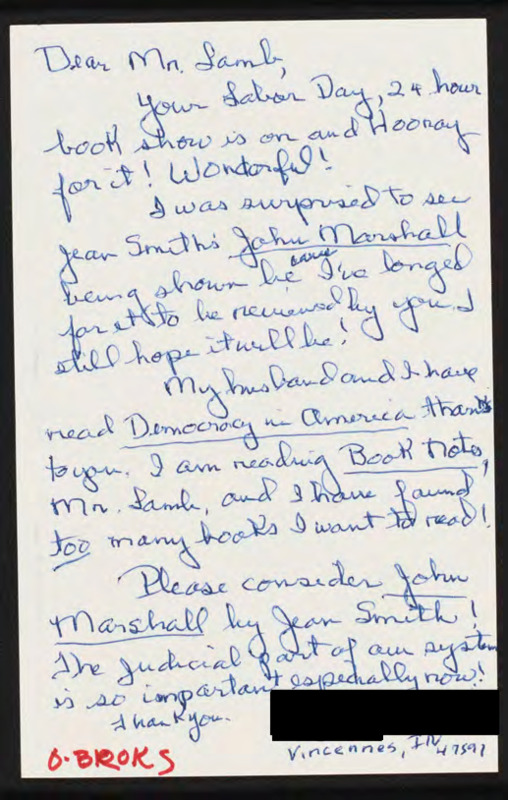 Dear Mr. Lamb,
Your Labor Day, 24 hour
book show is on and Hooray
for it! Wonderful!
I was surprised to see
Jean Smith's John Marshall
being shown be cause I've longed
for it to be reviewed by you. I
still hope it will be!
My husband and I have
read Democracy in America thanks
to you. I am reading Book Notes,
Mr. Lamb, and I have found
too many books I want to read!
Please consider John
Marshall by Jean Smith!
The Judicial part of our system
is so important especially now!
Thank you.
Vincennes, IN
47591
O·BROKS